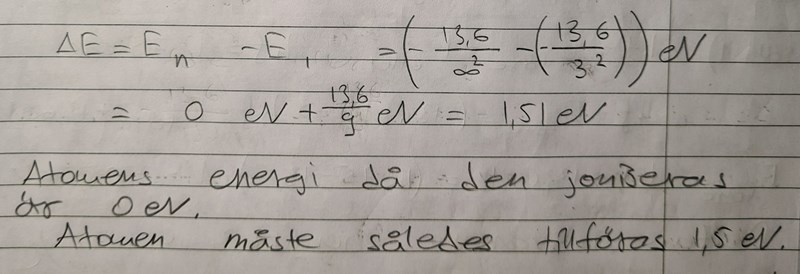 ΔE = E_n - E_1 = (- 13,6/∞² - (- 13,6/3²)) eV
= 0 eV + 13,6/9 eV = 1,51 eV
Atomens energi då den joniseras
är 0 eV.
Atomen måste således tillföras 1,5 eV.